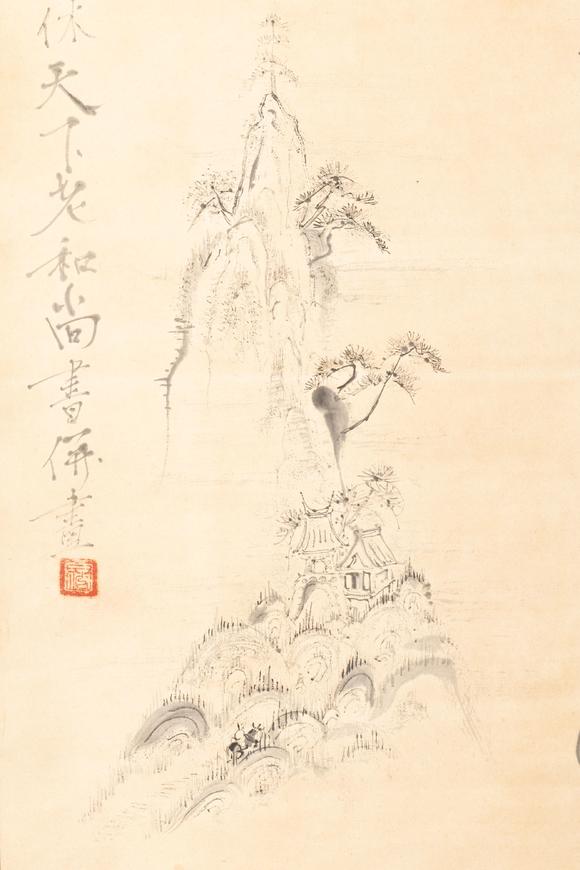 休天下老和尚書併畫